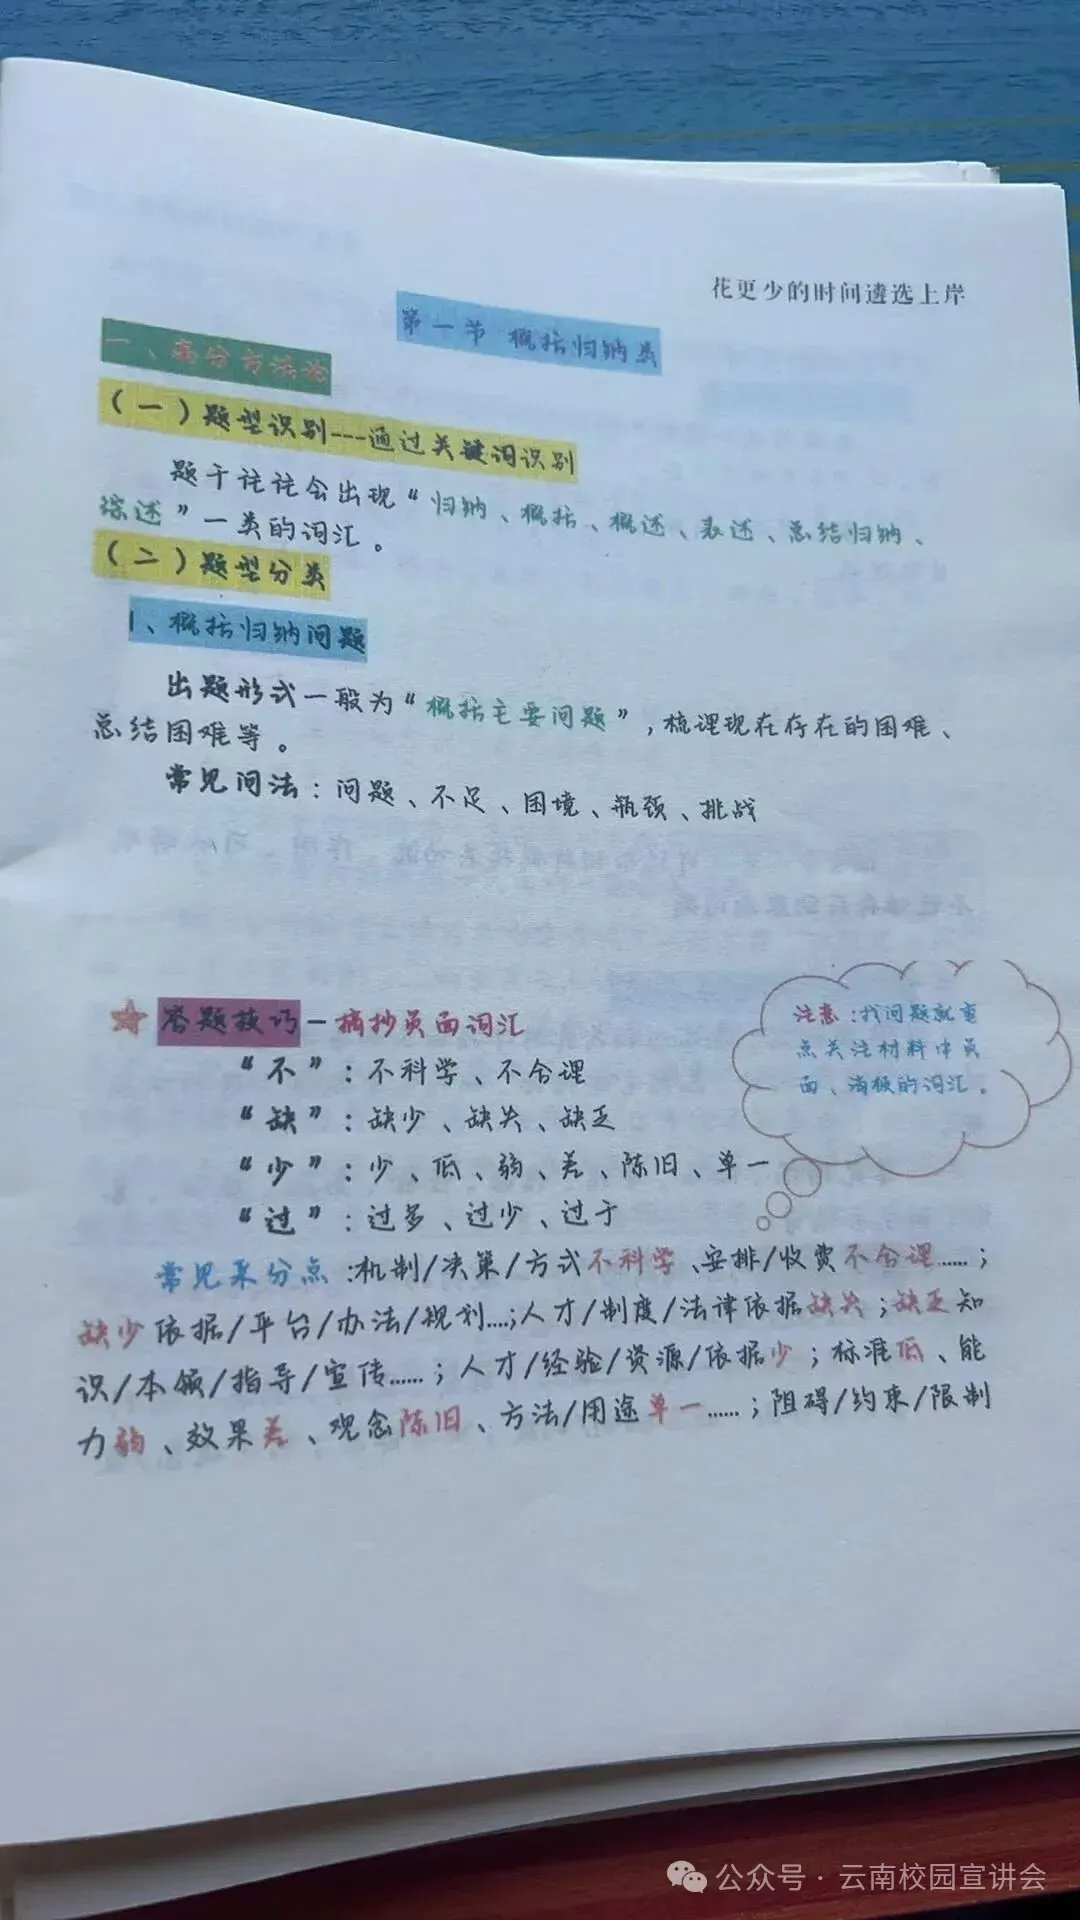 花更少的时间遴选上岸
第一节 概括归纳类
一、高分方法论
（一）题型识别---通过关键词识别
题干往往会出现“归纳、概括、概述、表述、总结归纳、
综述”一类的词汇。
（二）题型分类
1、概括归纳问题
出题形式一般为“概括主要问题”，梳理现在存在的困难、
总结困难等。
常见问法：问题、不足、困境、瓶颈、挑战
答题技巧—摘抄负面词汇
注意：找问题就重
点关注材料中负
面、消极的词汇。
“不”：不科学、不合理
“缺”：缺少、缺失、缺乏
“少”：少、低、弱、差、陈旧、单一
“过”：过多、过少、过于
常见采分点：机制/决策/方式不科学、安排/收费不合理……；
缺少依据/平台/办法/规划....；人才/制度/法律依据缺失；缺乏知
识/本领/指导/宣传……；人才/经验/资源/依据少；标准低、能
力弱、效果差、观念陈旧、方法/用途单一……；阻碍/约束/限制
公众号·云南校园宣讲会